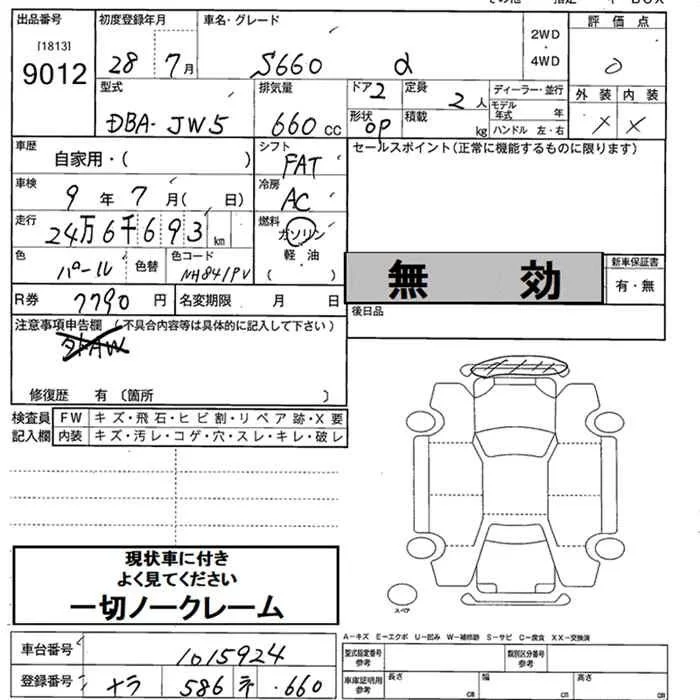 出品番号 初度登録年月 車名・グレード 評価点
[1813]
9012
28 7月 S660 α
2WD
・
4WD
0
型式 排気量 ドア 2 定員 2人 ディーラー・並行 外装 内装
DBA-JW5 660 cc 形状 OP 積載 kg モデル年式 年 × ×
ハンドル 左・右
車歴 自家用・( ) シフト FAT セールスポイント(正常に機能するものに限ります)
車検 9年 7月( 日) 冷房 AC
走行 24万6千693km 燃料 ガソリン
軽・油
( )
色 パール 色替 色コード NH841PV 無 効 新車保証書
有・無
R券 7790円 名変期限 月 日 後日品
注意事項申告欄(不具合内容等は具体的に記入して下さい)
修復歴 有 〔箇所 〕
検査員 FW キズ・飛石・ヒビ割・リペア跡・X要
記入欄 内装 キズ・汚レ・コゲ・穴・スレ・キレ・破レ
現状車に付き
よく見てください
一切ノークレーム
スペア
A-キズ E-エクボ U-凹み W-補修跡 S-サビ C-腐食 XX-交換済
車台番号 1015924 型式指定番号 参考 類別区分番号 参考
登録番号 ナラ 586 .660 車庫証明用 参考 長さ cm 幅 cm 高さ cm